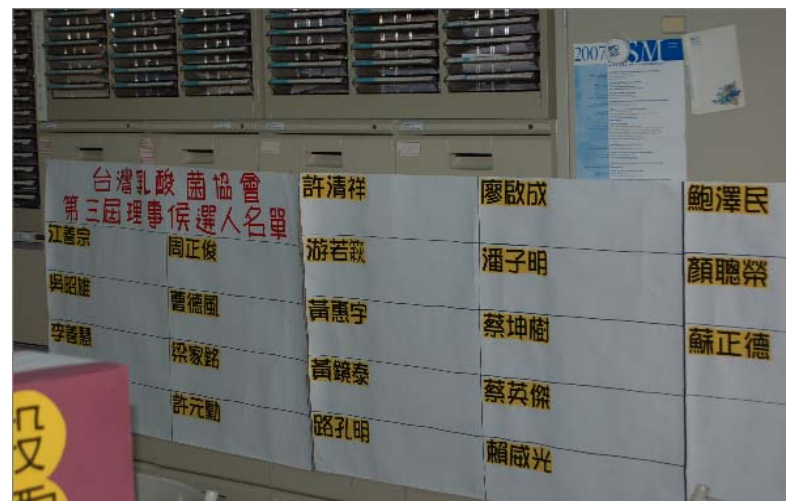 2007
SM
台灣乳酸菌協會
第三屆理事候選人名單
江善宗
吳昭雄
李善慧
周正俊
曹德風
梁家銘
許元勳
許清祥
游若篍
黃惠宇
黃鏡泰
路孔明
廖啟成
潘子明
蔡坤樹
蔡英傑
賴威光
鮑澤民
顏聰榮
蘇正德
投